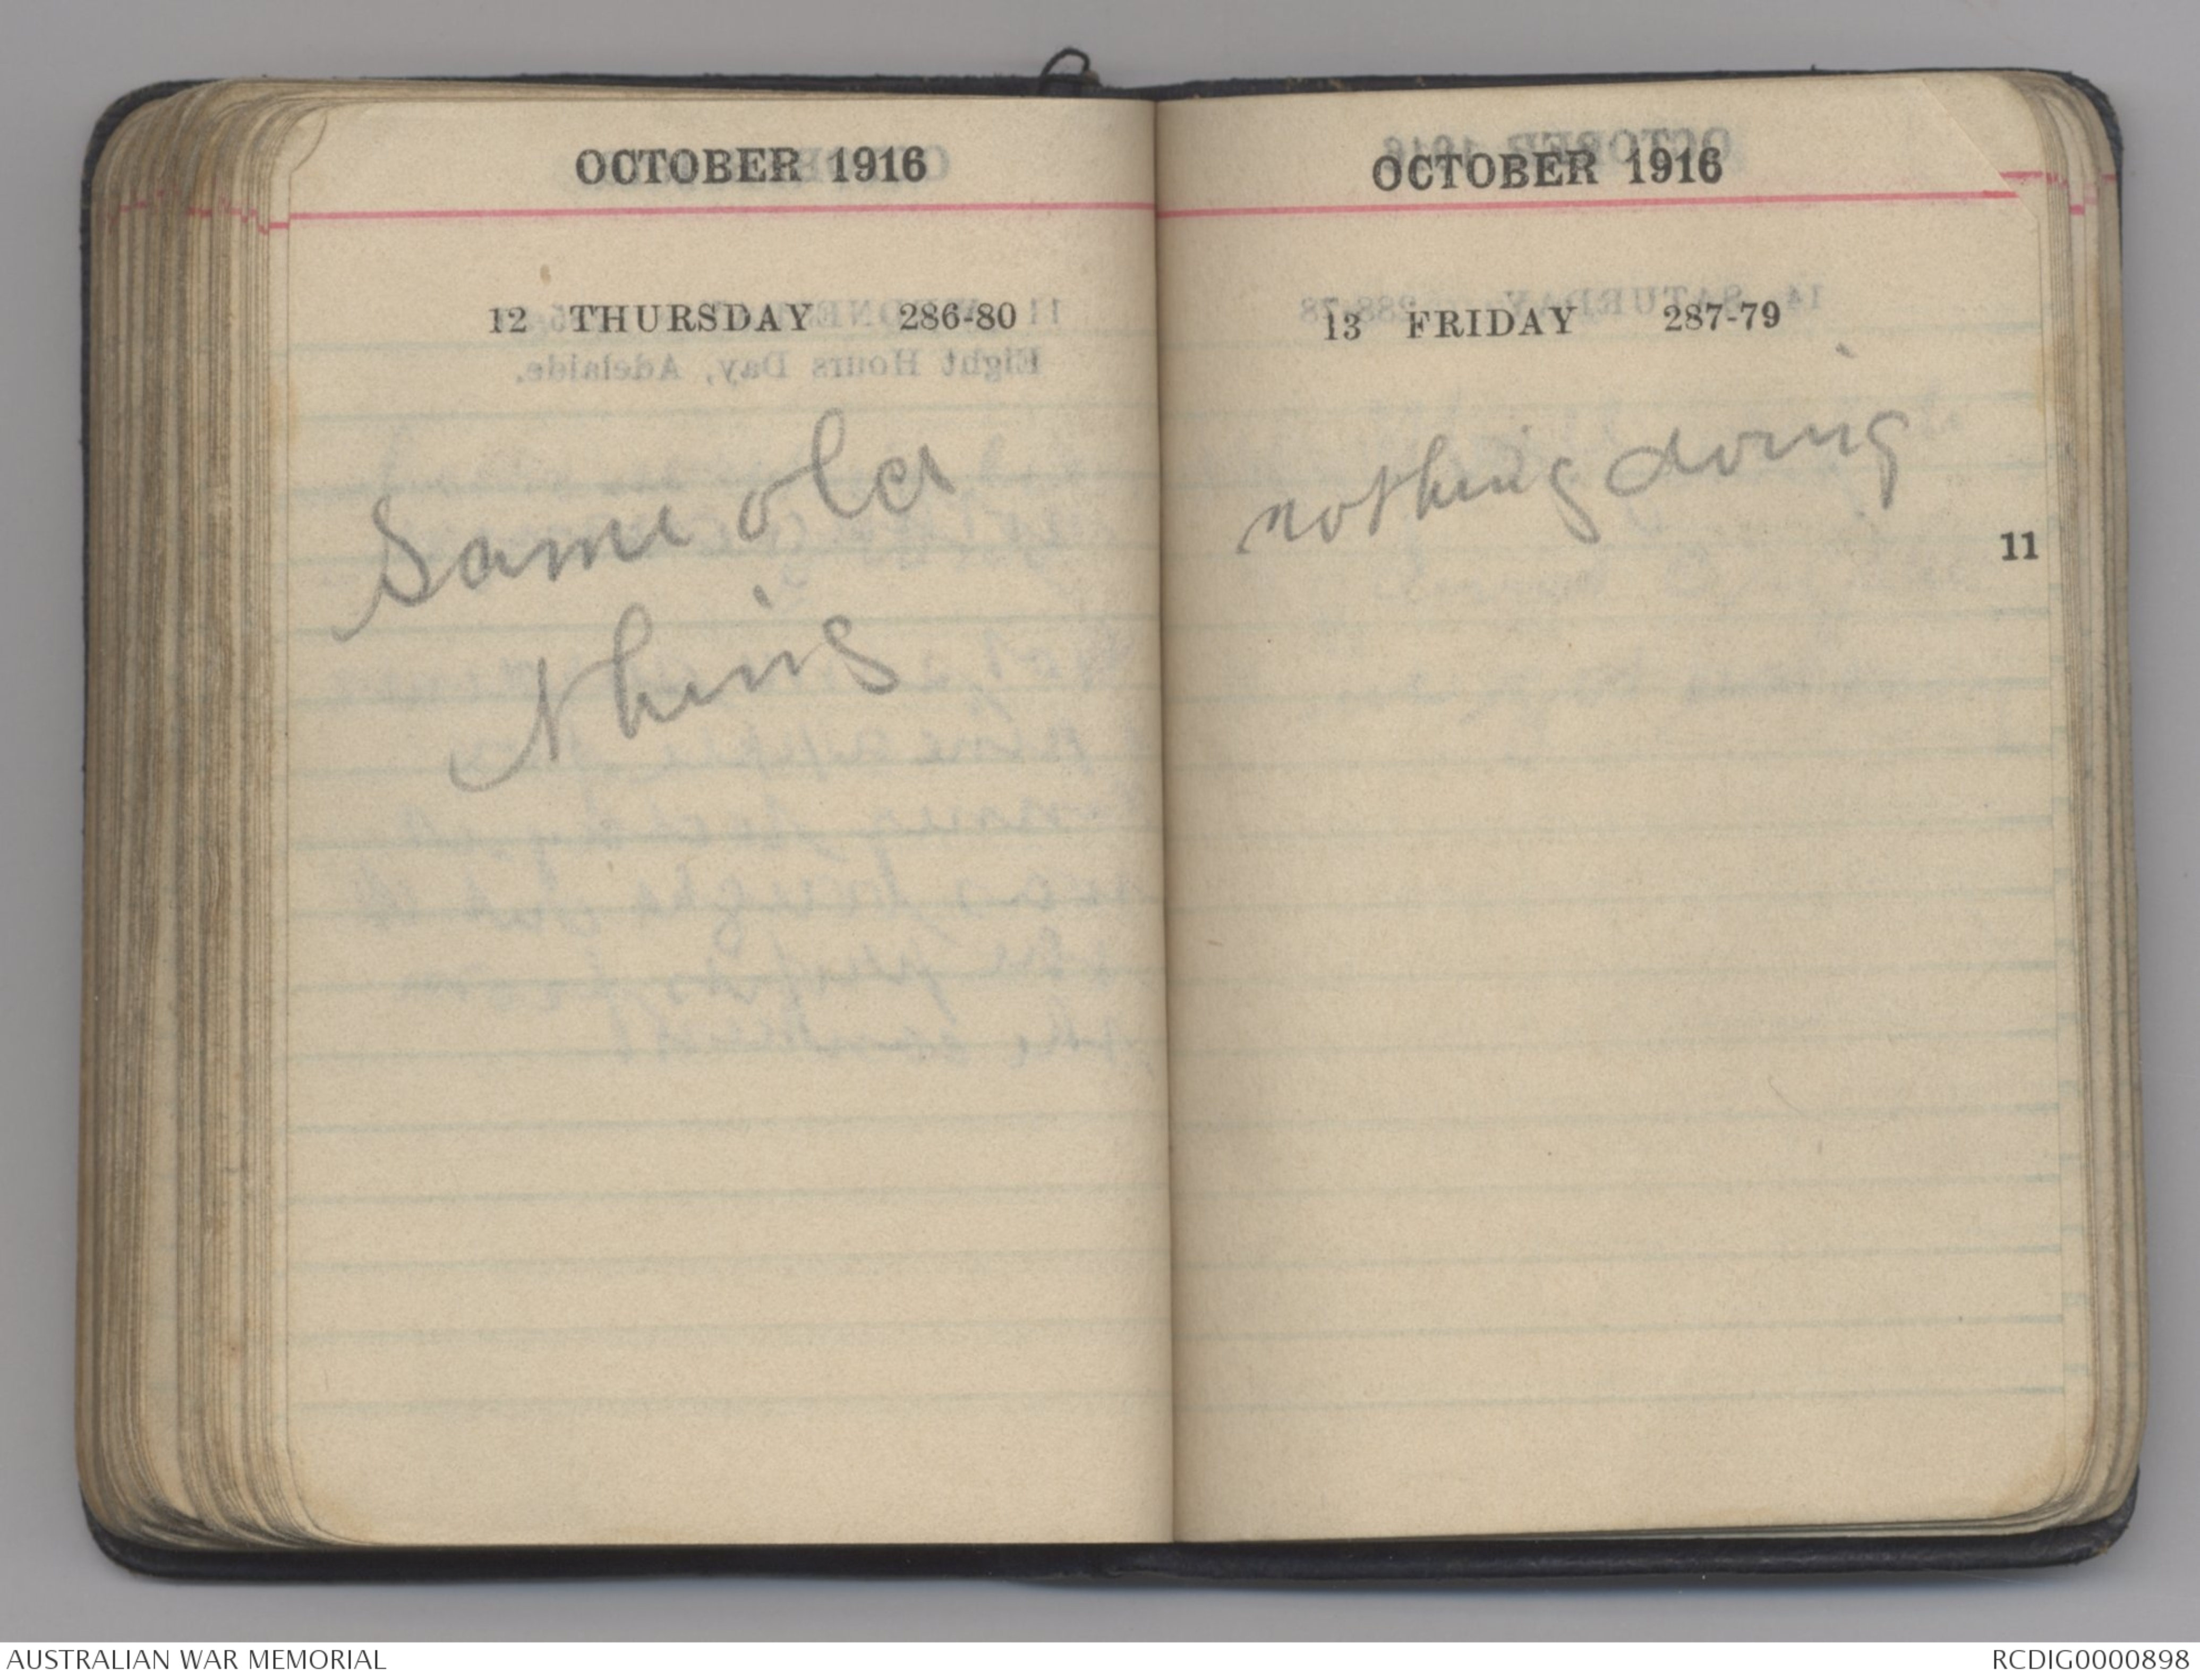 OCTOBER 1916
12 THURSDAY 286-80
Same old
thing
OCTOBER 1916
13 FRIDAY 287-79
nothing doing
11
AUSTRALIAN WAR MEMORIAL
RCDIG0000898